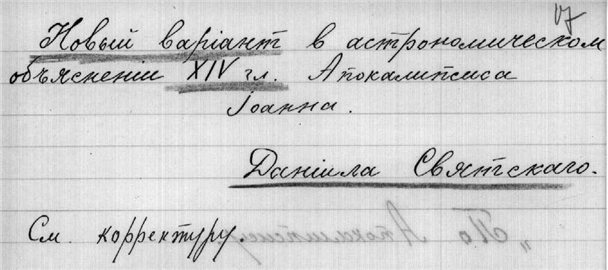 Новый варіант в астрономическом
объясненіи XIV гл. Апокалипсиса
Іоанна.
Даніила Святскаго.
См. корректуру.